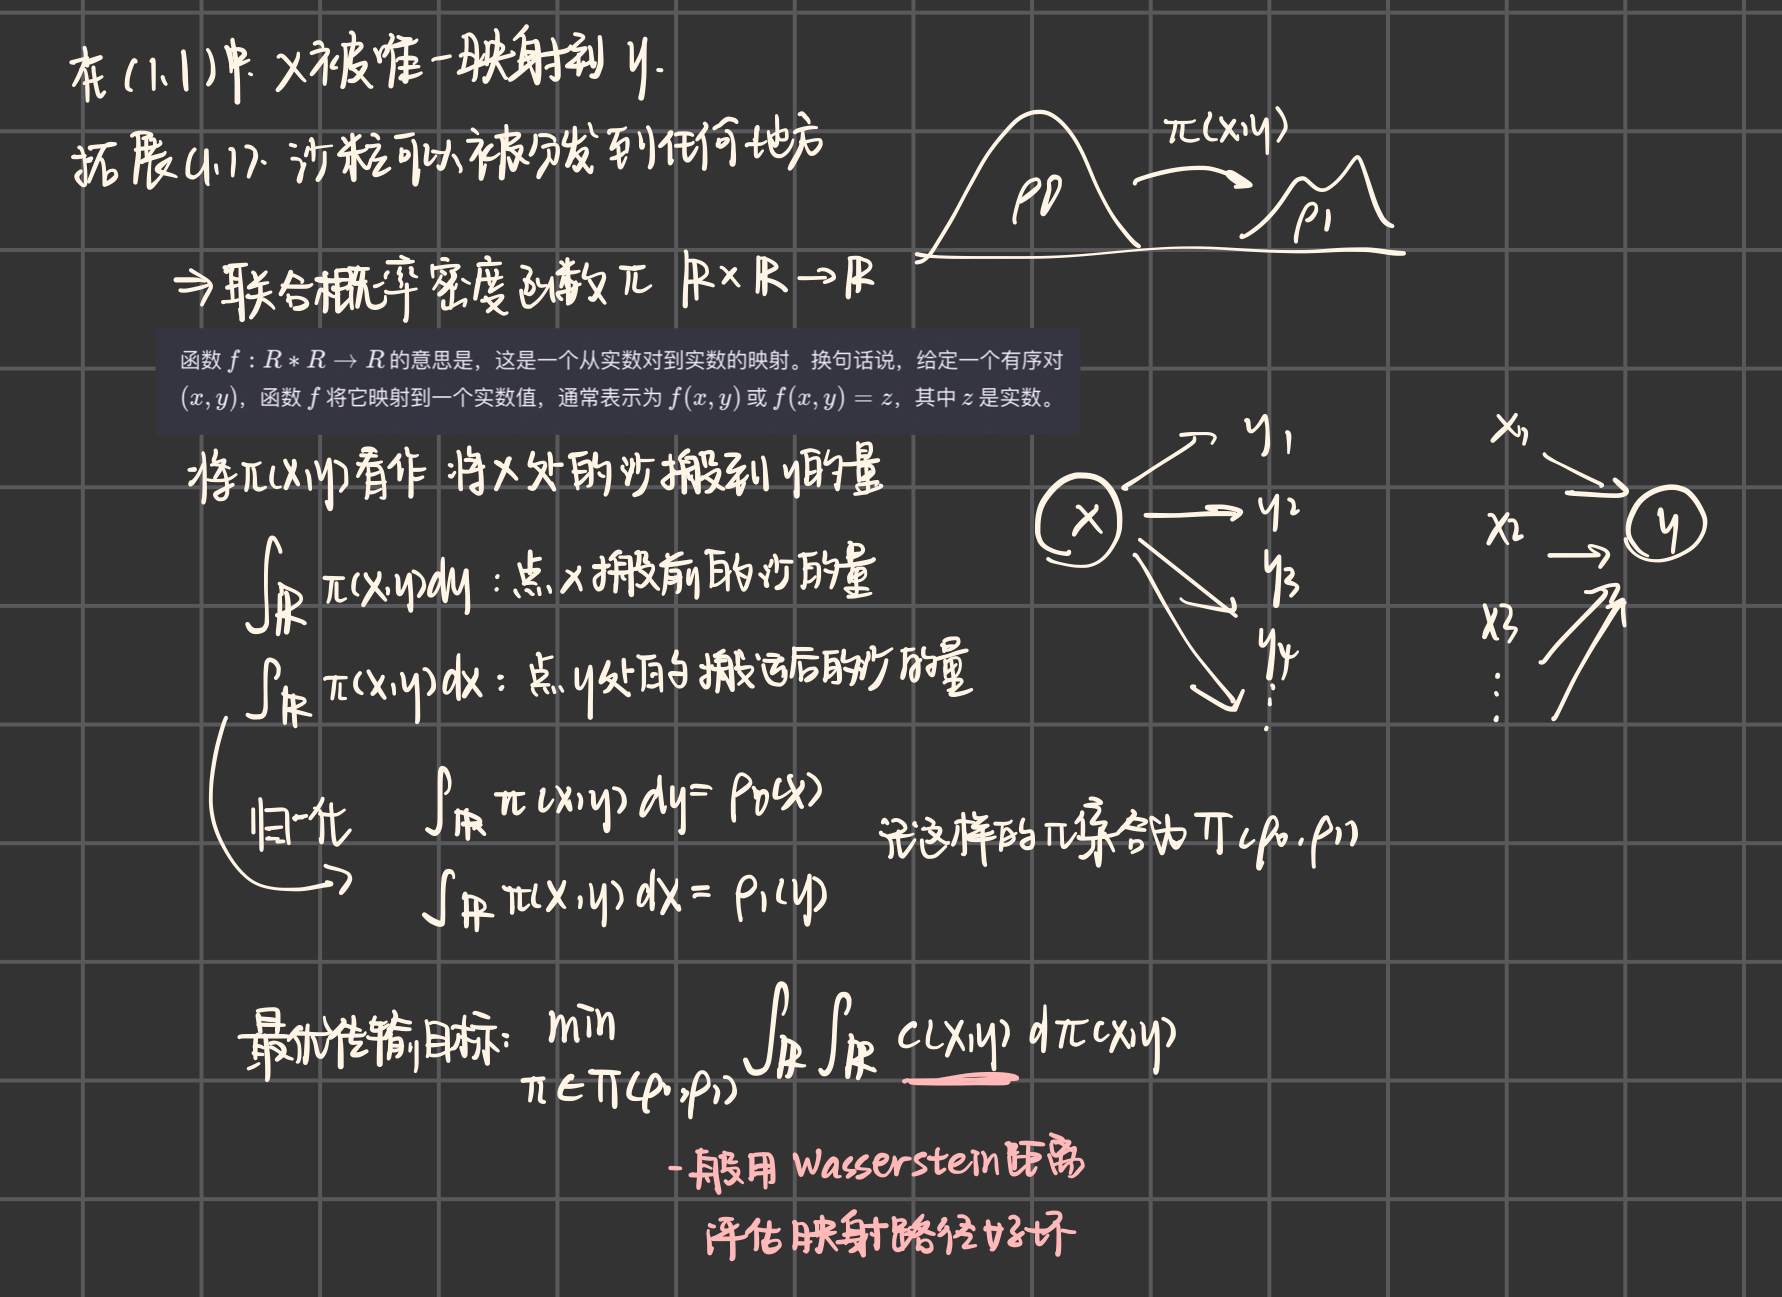 在(1.1)中. x被唯一映射到 y.
拓展(1.1). 沙粒可以被分发到任何地方
π(x,y)
ρ0
ρ1
⇒联合概率密度函数 π ℝ×ℝ→ℝ
函数 f : R ∗ R → R 的意思是，这是一个从实数对到实数的映射。换句话说，给定一个有序对
(x, y)，函数 f 将它映射到一个实数值，通常表示为 f(x, y) 或 f(x, y) = z，其中 z 是实数。
将π(x,y)看作 将x处的沙搬到y的量
∫ℝ π(x,y)dy : 点x搬前的沙的量
∫ℝ π(x,y)dx : 点y处的搬运后的沙的量
x
y1
y2
y3
y4
⋮
x1
x2
x3
⋮
y
归一化
∫ℝ π(x,y) dy = ρ0(x)
∫ℝ π(x,y) dx = ρ1(y)
记这样的π集合为 Π(ρ0,ρ1)
最优传输目标: min π∈Π(ρ0,ρ1) ∫ℝ ∫ℝ c(x,y) dπ(x,y)
一般用 Wasserstein距离
评估映射路径好坏